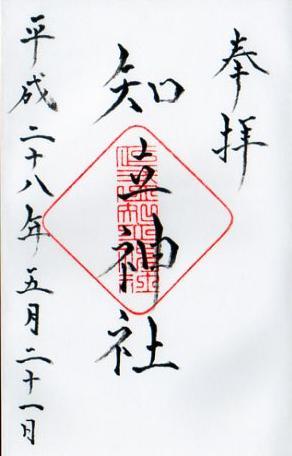 奉拝
知立神社
平成二十八年五月二十一日